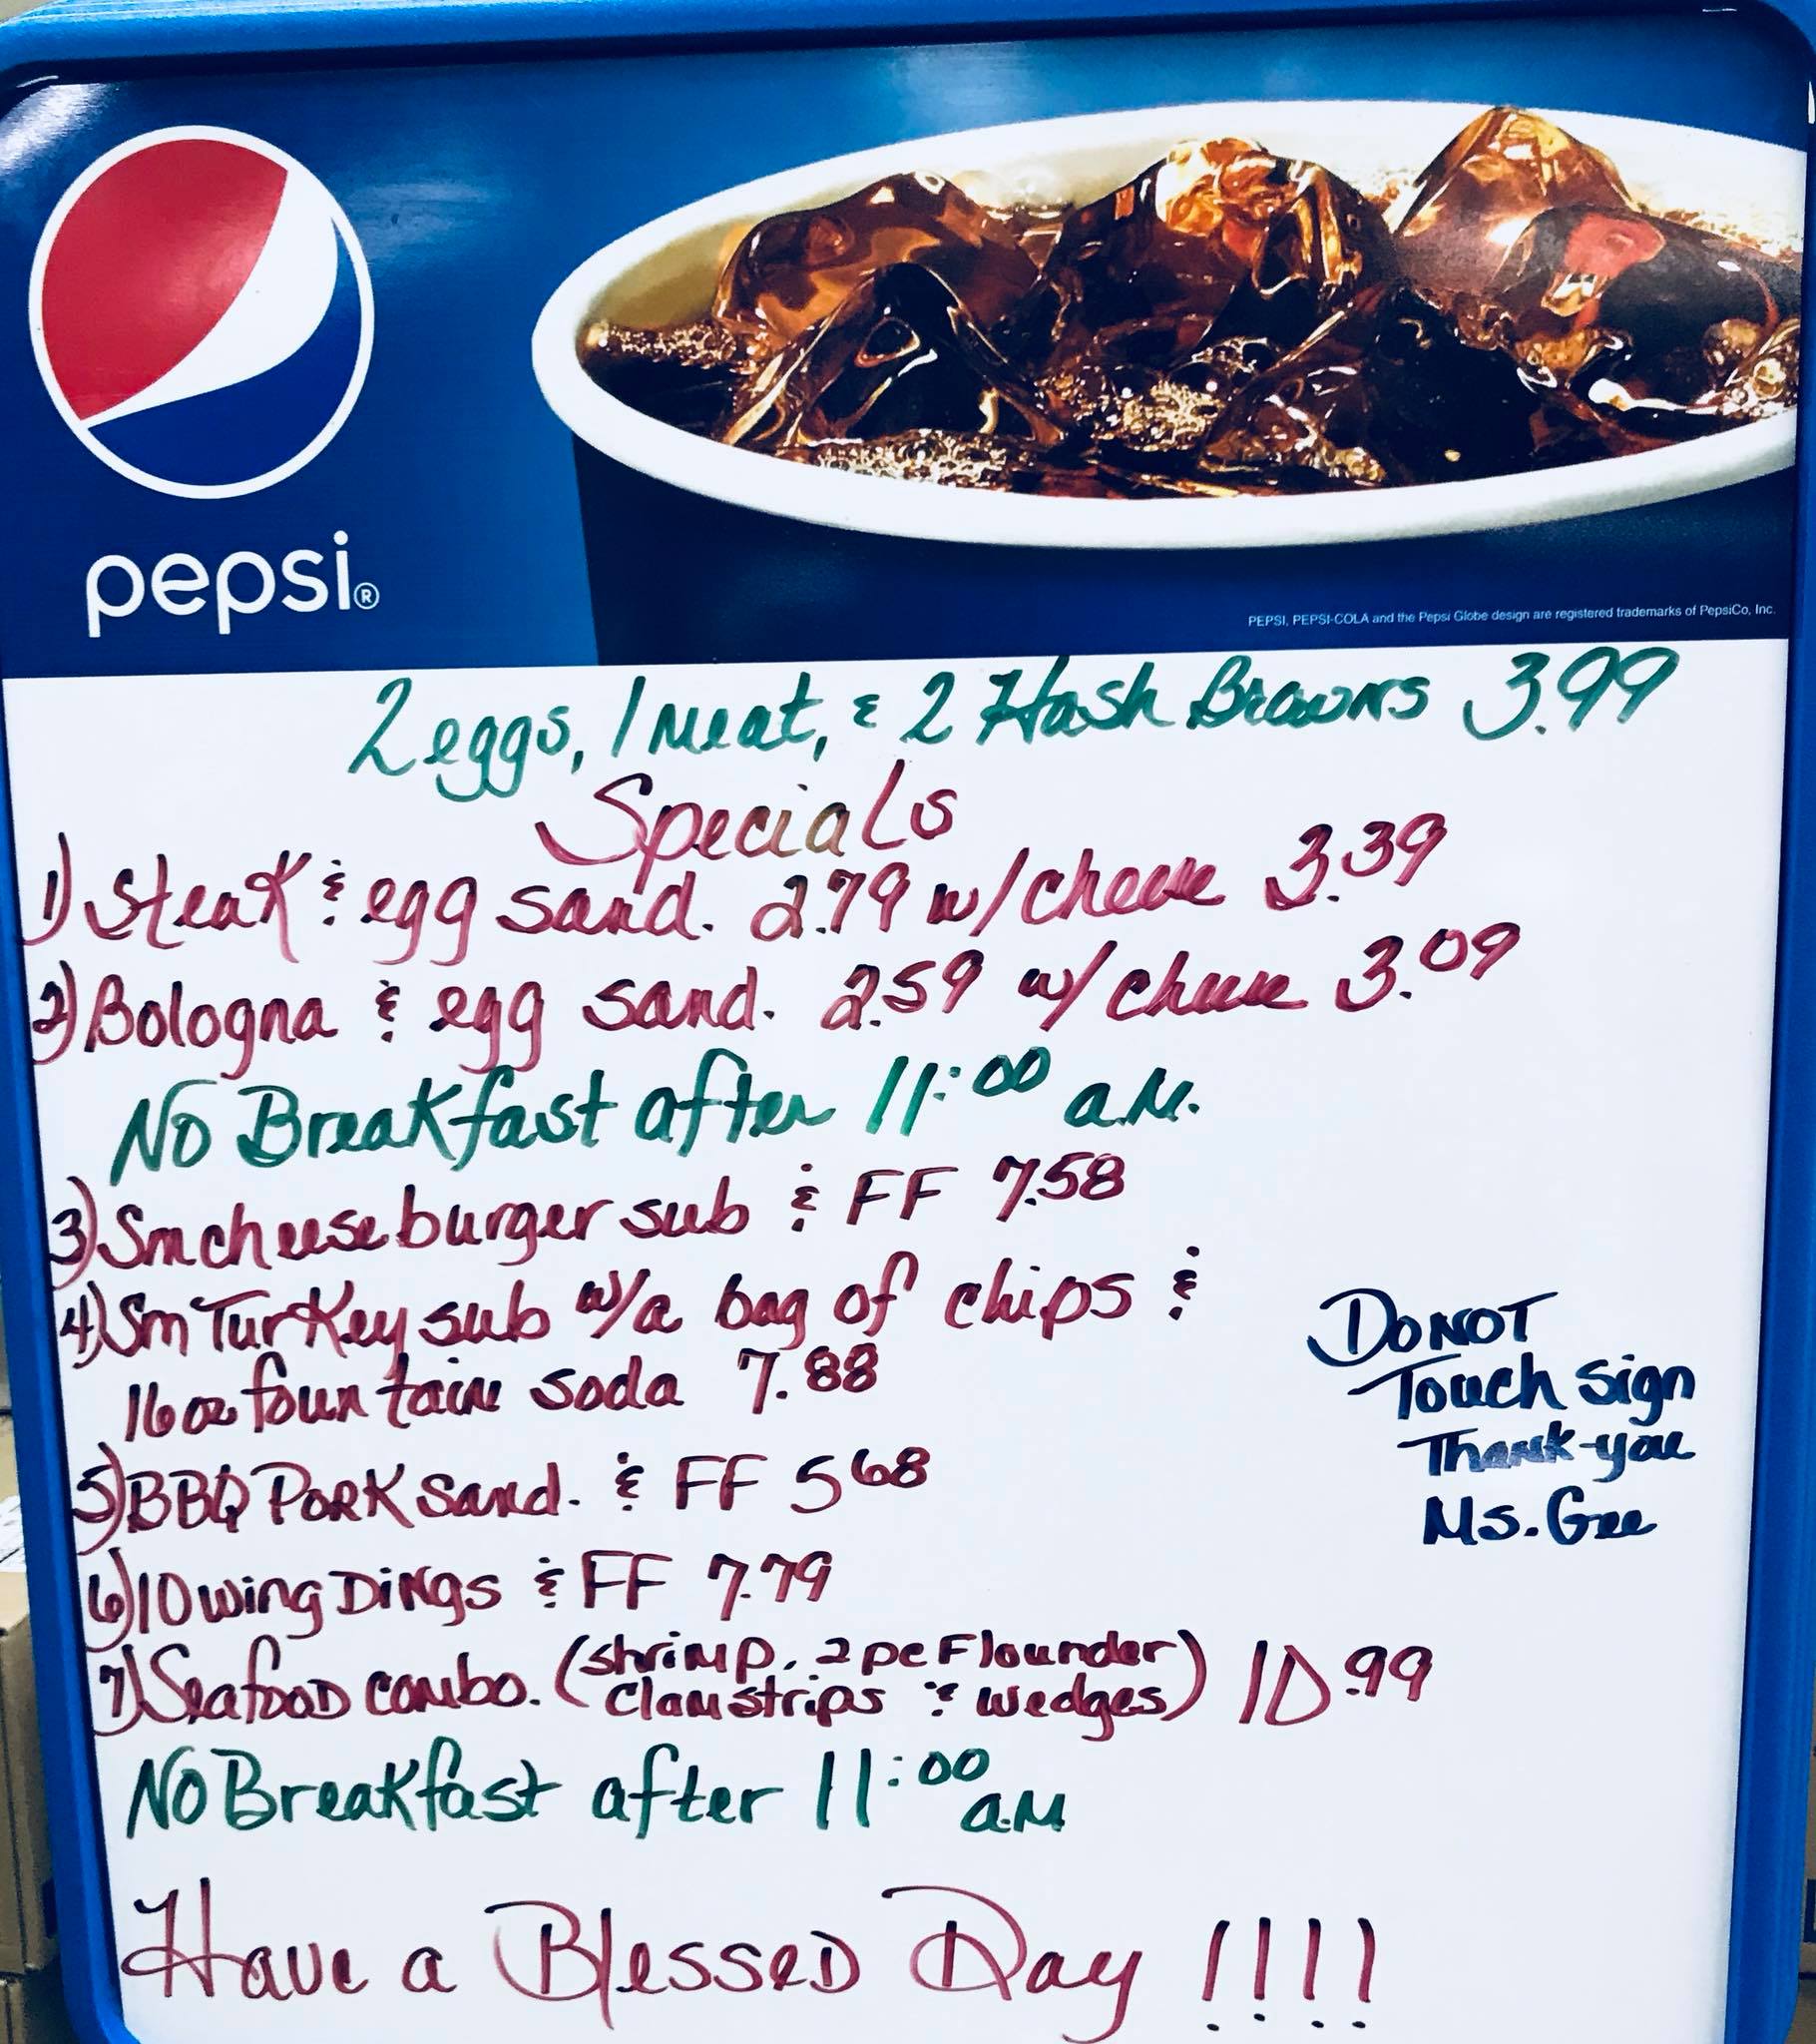 pepsi®
PEPSI, PEPSI-COLA and the Pepsi Globe design are registered trademarks of PepsiCo, Inc.
2 eggs, 1 meat, & 2 Hash Browns 3.99
Specials
1) Steak & egg sand. 2.79 w/cheese 3.39
2) Bologna & egg sand. 2.59 w/ cheese 3.09
No Breakfast after 11:00 a.m.
3) Sm cheeseburger sub & FF 7.58
4) Sm Turkey sub w/a bag of chips &
16 oz fountain soda 7.88
5) BBQ Pork Sand. & FF 5 68
6) 10 wing Dings & FF 7.79
7) Seafood combo. (shrimp, 2 pc Flounder
clam strips & wedges) 10.99
No Breakfast after 11:00 a.m
Have a Blessed Day !!!!
Do NOT
Touch Sign
Thank-you
Ms. Gee